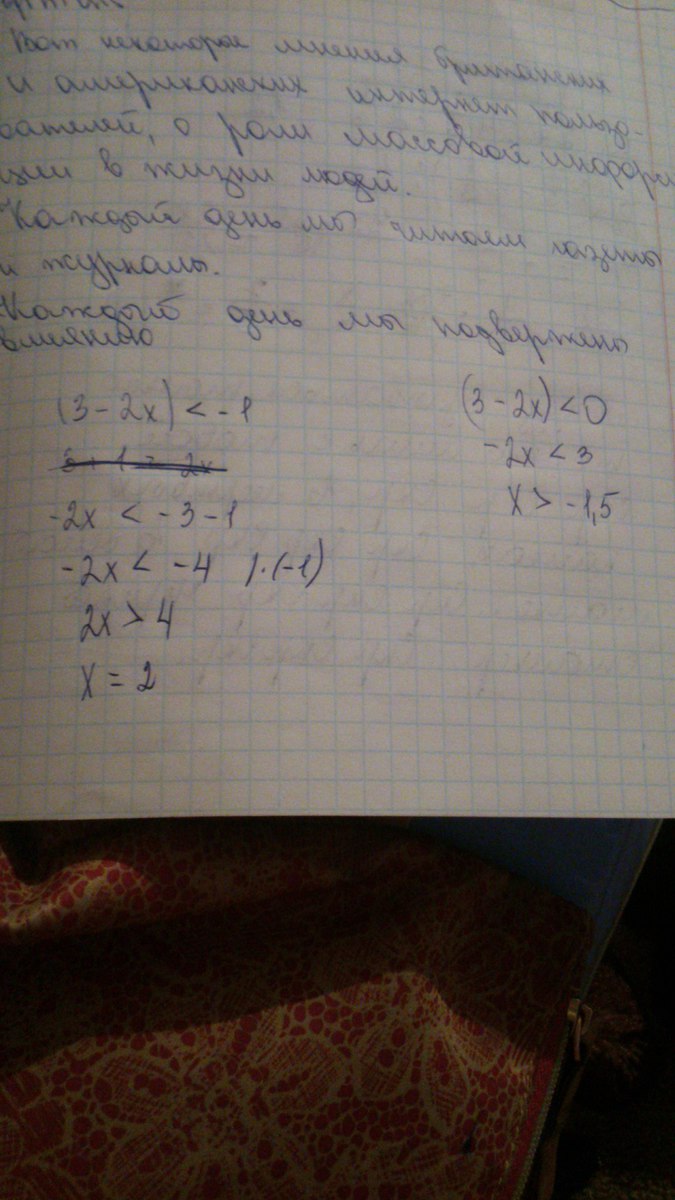 Вот некоторые мнения британских
и американских интернет пользо-
вателей, о роли массовой информа
ции в жизни людей.
Каждый день мы читаем газеты
и журналы.
Каждый день мы подвержены
влиянию
(3-2x) < -1
-2x < -3-1
-2x < -4 |·(-1)
2x > 4
x = 2
(3-2x) < 0
-2x < 3
x > -1,5